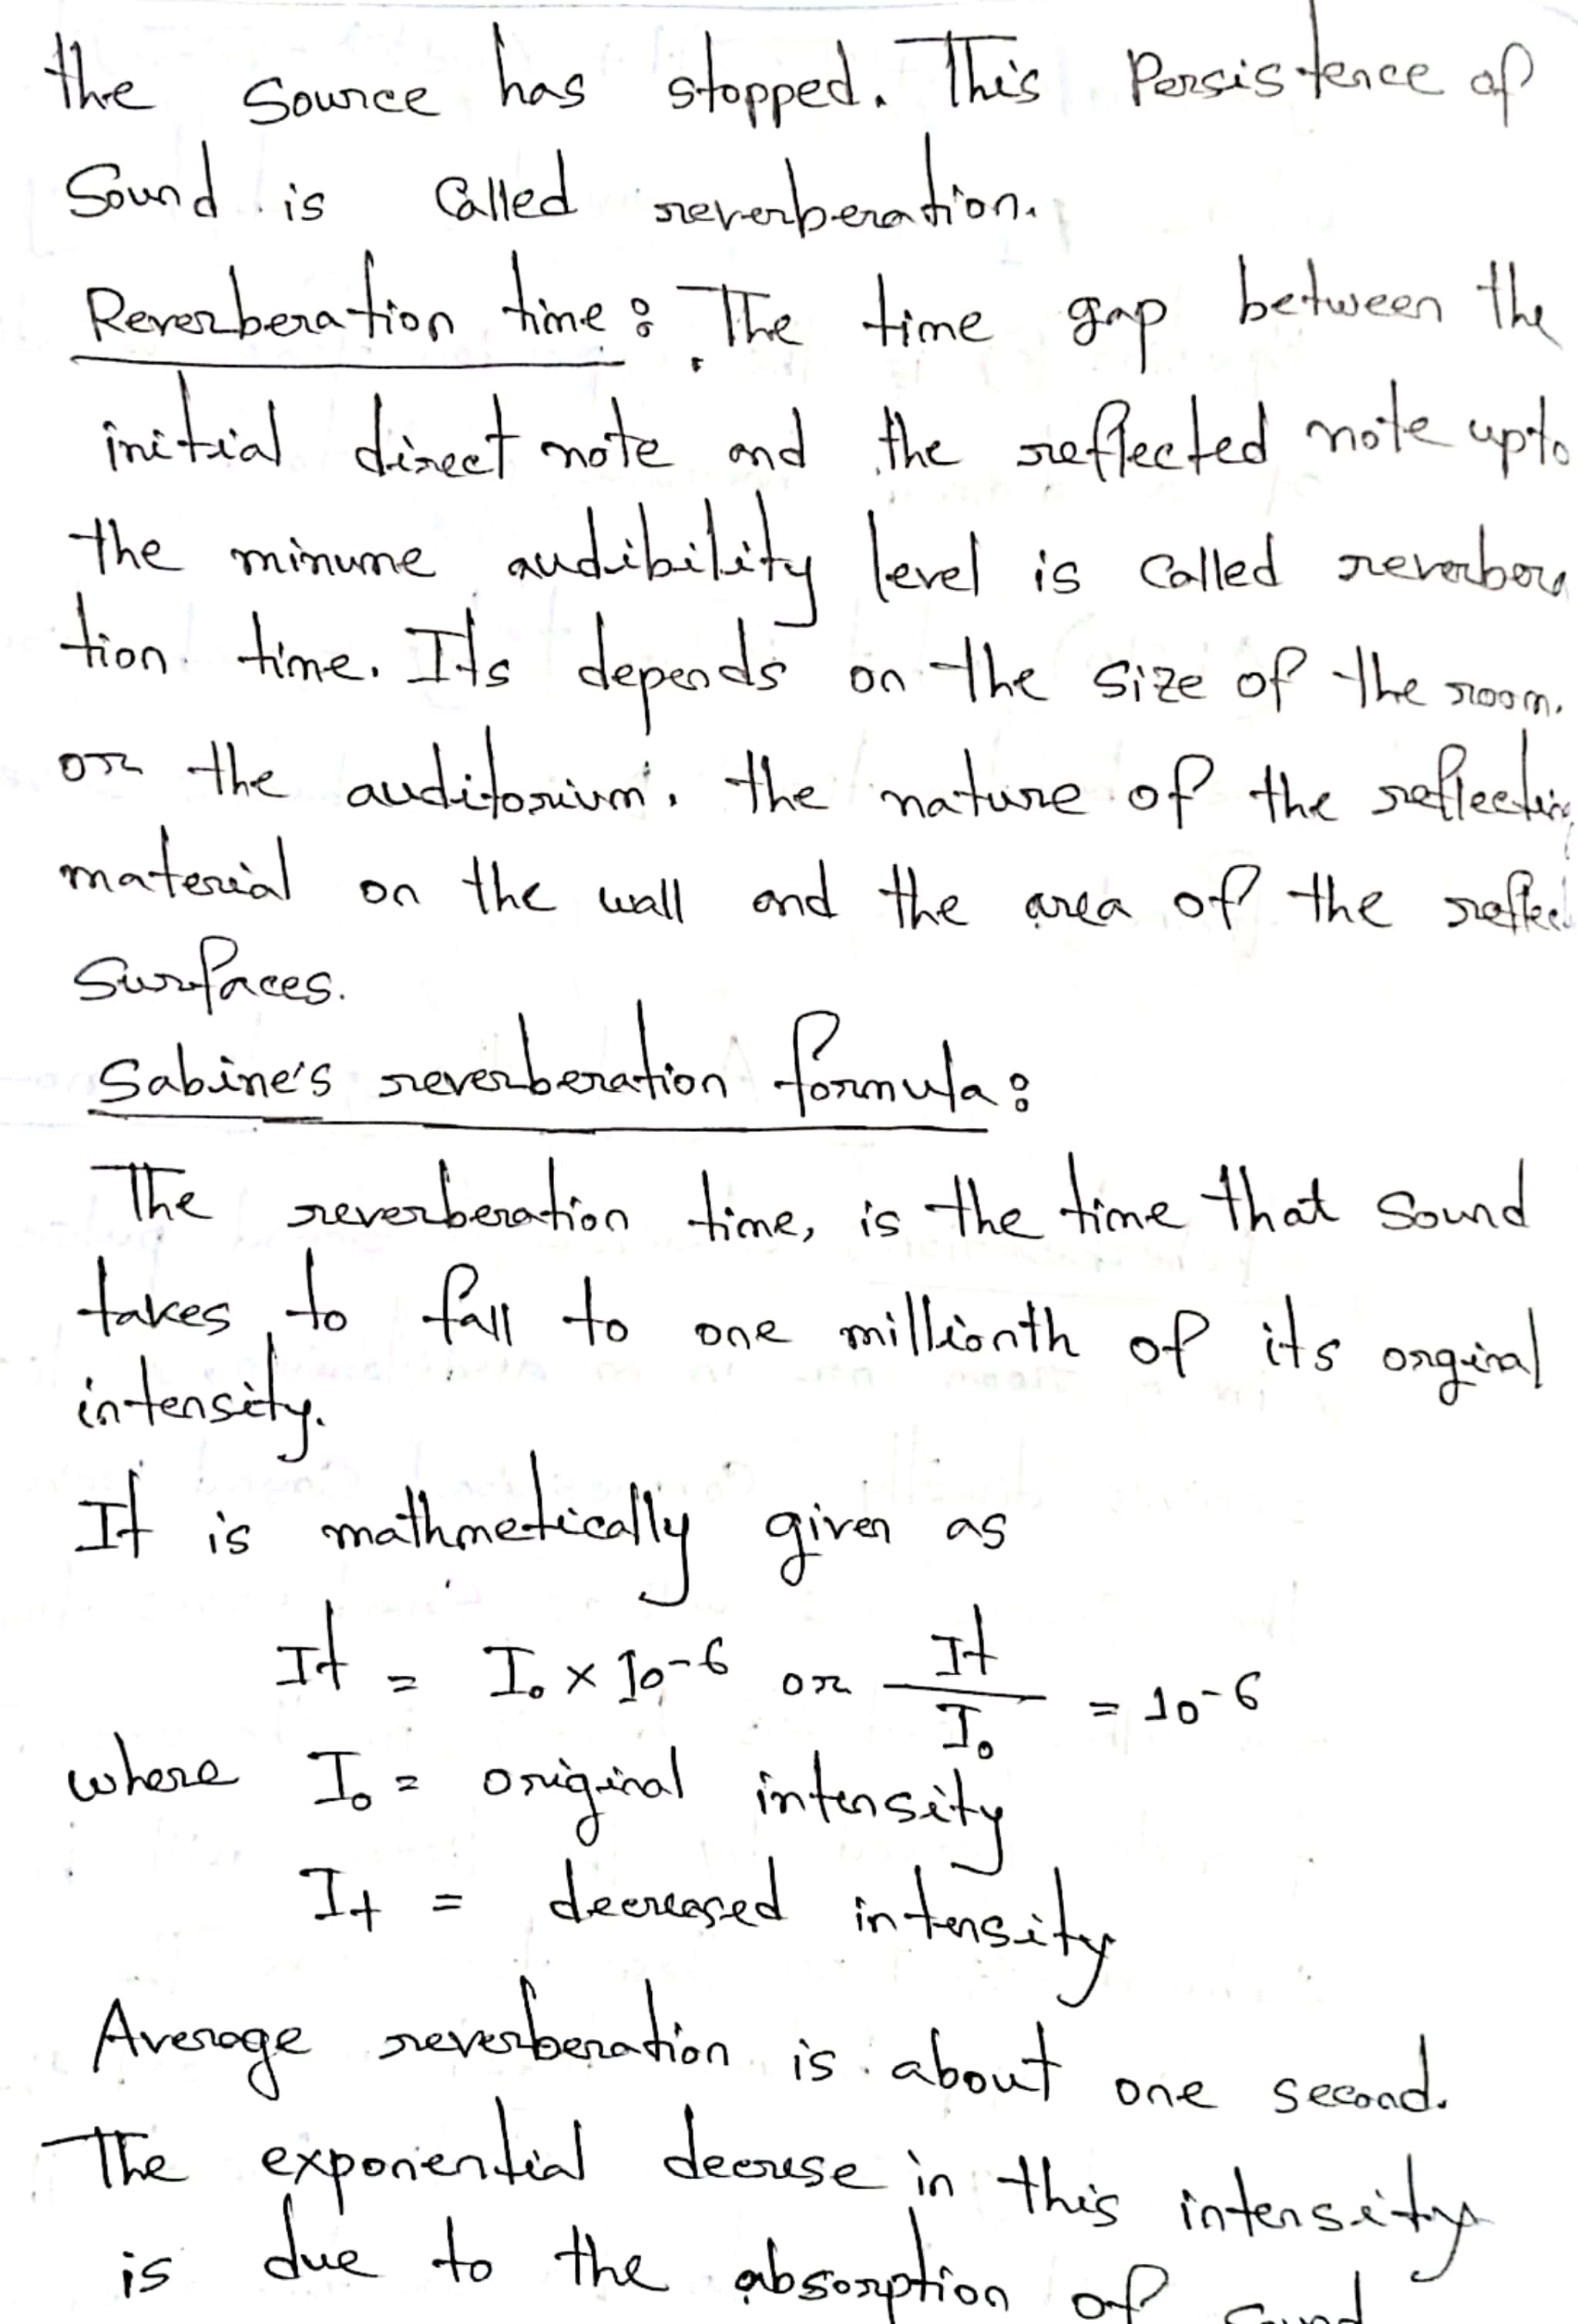 the source has stopped. This Persistence of
Sound is Called reverberation.
Reverberation time: The time gap between the
initial direct note and the reflected note upto
the minume audibility level is called reverbera
tion time. Its depends on the size of the room.
or the auditorium, the nature of the reflecting
material on the wall and the area of the reflec
Surfaces.
Sabine's reverberation formula:
The reverberation time, is the time that Sound
takes to fall to one millionth of its orginal
intensity.
It is mathmetically given as
It = I₀ × 10⁻⁶ or It/I₀ = 10⁻⁶
where I₀ = original intensity
It = decreased intensity
Average reverberation is about one second.
The exponential decrese in this intensity
is due to the absorption of Sound